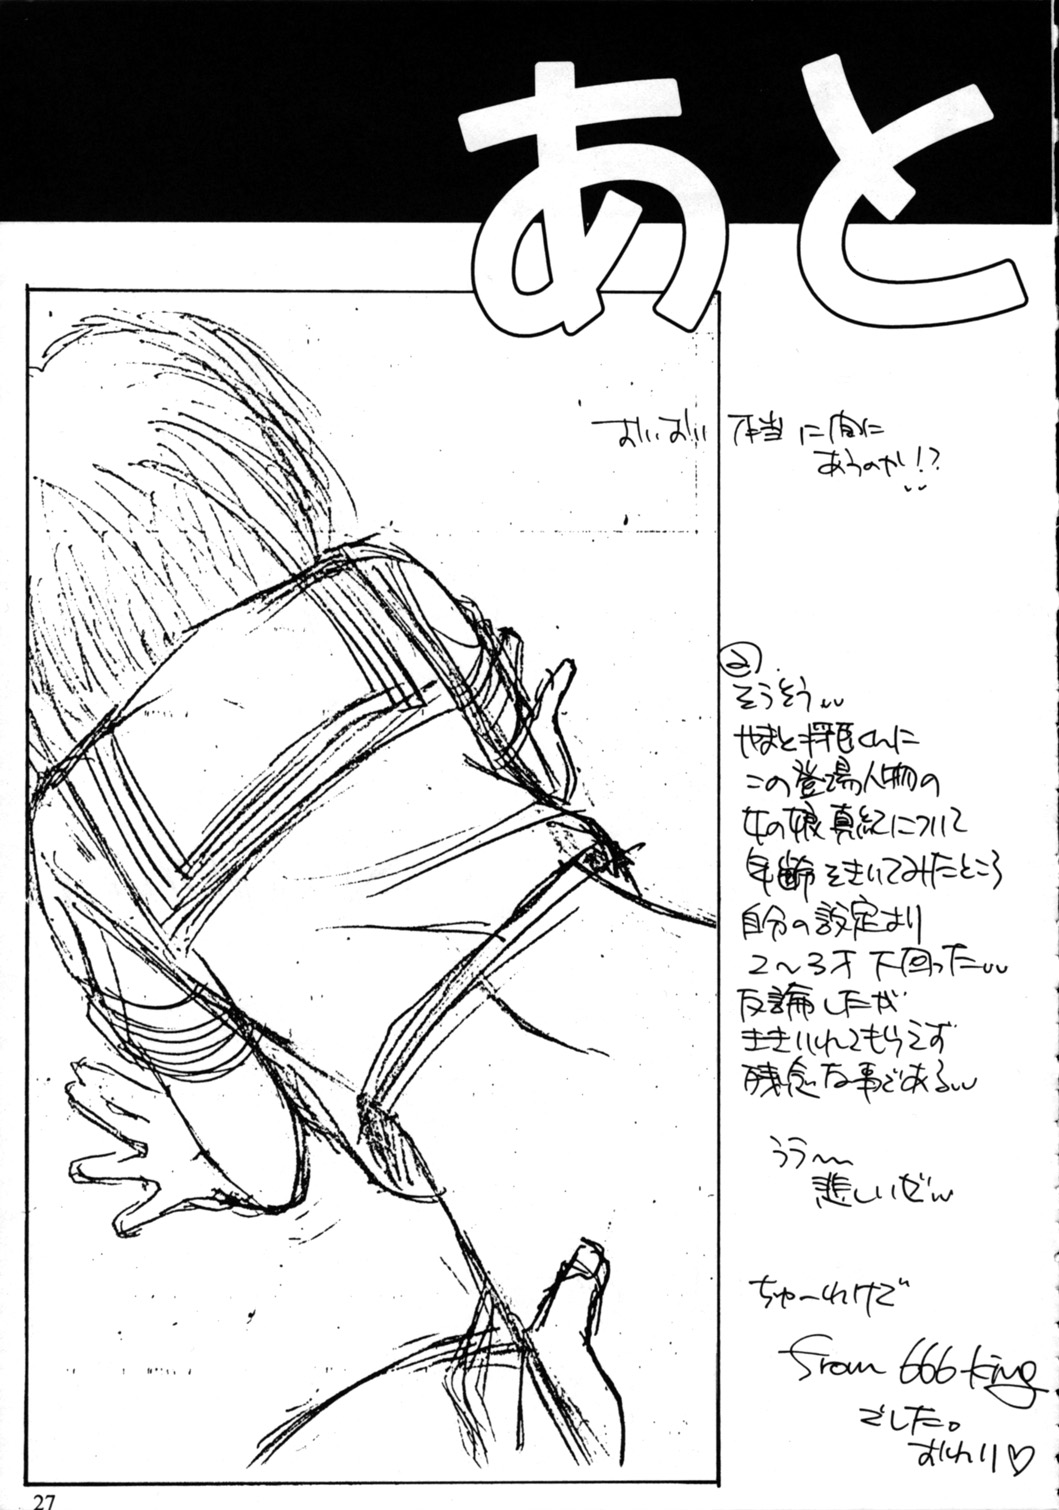 あと
おいおい 本当に間に
あうのか!?
②
そうそう
やまと
この登場人物の
女の娘真紀について
年齢をきいてみたところ
自分の設定より
2〜3才下回った
反論したが
ききいれてもらえず
残念な事である
うう〜
悲しいぜ
ちゃーれけで
From 666 king
でした。
おわり♡
27